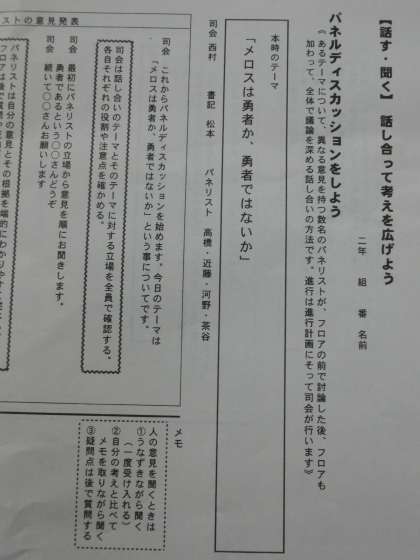 【話す・聞く】 話し合って考えを広げよう
二年 組 番 名前
パネルディスカッションをしよう
《あるテーマについて、異なる意見を持つ数名のパネリストが、フロアの前で討論した後、フロアも
加わって、全体で議論を深める話し合いの方法です。進行は進行計画にそって司会が行います》
本時のテーマ
「メロスは勇者か、勇者ではないか」
司会 西村 書記 松本 パネリスト 高橋・近藤・河野・茶谷
司会 これからパネルディスカッションを始めます。今日のテーマは
「メロスは勇者か、勇者ではないか」という事についてです。
司会は話し合いのテーマとそのテーマに対する立場を全員で確認する。
各自それぞれの役割や注意点を確かめる。
司会 最初にパネリストの立場から意見を順にお聞きします。
勇者であるという〇〇さんどうぞ
司会 続いて〇〇さんお願いします
パネリストは自分の意見とその根拠を端的にわかりやすく
フロアは後で質問や
ストの意見発表
メモ
人の意見を聞くときは
①うなずきながら聞く
(一度受け入れる)
②自分の考えと比べて
メモを取りながら聞く
③疑問点は後で質問する